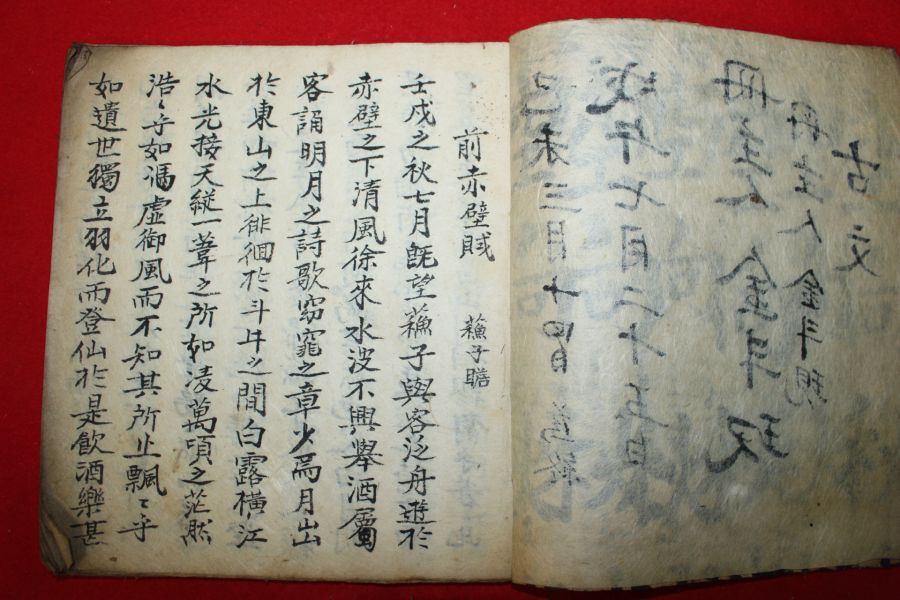 古文
冊主人 金斗現
冊主人 金斗玹
戊午七月二十五日
己未三月十四日
前赤壁賦 蘓子瞻
壬戌之秋七月旣望蘓子與客泛舟遊於
赤壁之下清風徐來水波不興舉酒屬
客誦明月之詩歌窈窕之章少焉月出
於東山之上徘徊於斗牛之間白露橫江
水光接天縱一葦之所如凌萬頃之茫然
浩〻乎如馮虛御風而不知其所止飄〻乎
如遺世獨立羽化而登仙於是飮酒樂甚